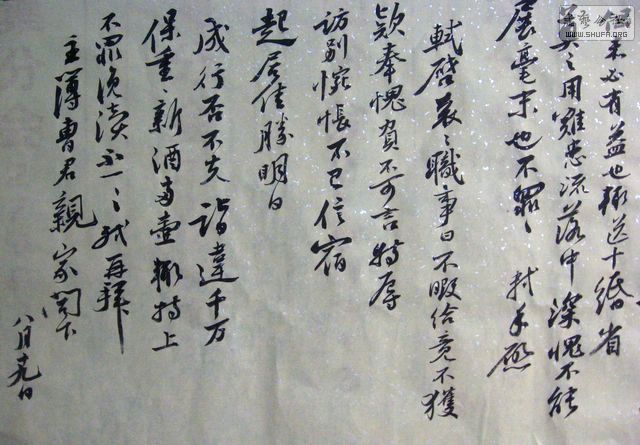 未必有益也輒送十緡省
之用難患流落中深愧不能
展毫末也不罪〻 軾手啓
軾啓袞〻職事日不暇給竟不獲
款奉愧負不可言特辱
訪別惋悵不已信宿
起居佳勝明日
成行否不克詣違千万
保重〻新酒兩壺輒持上
不罪浼瀆不一〻軾再拜
主簿曹君親家閣下
八月十九日
WWW.SHUFA.ORG